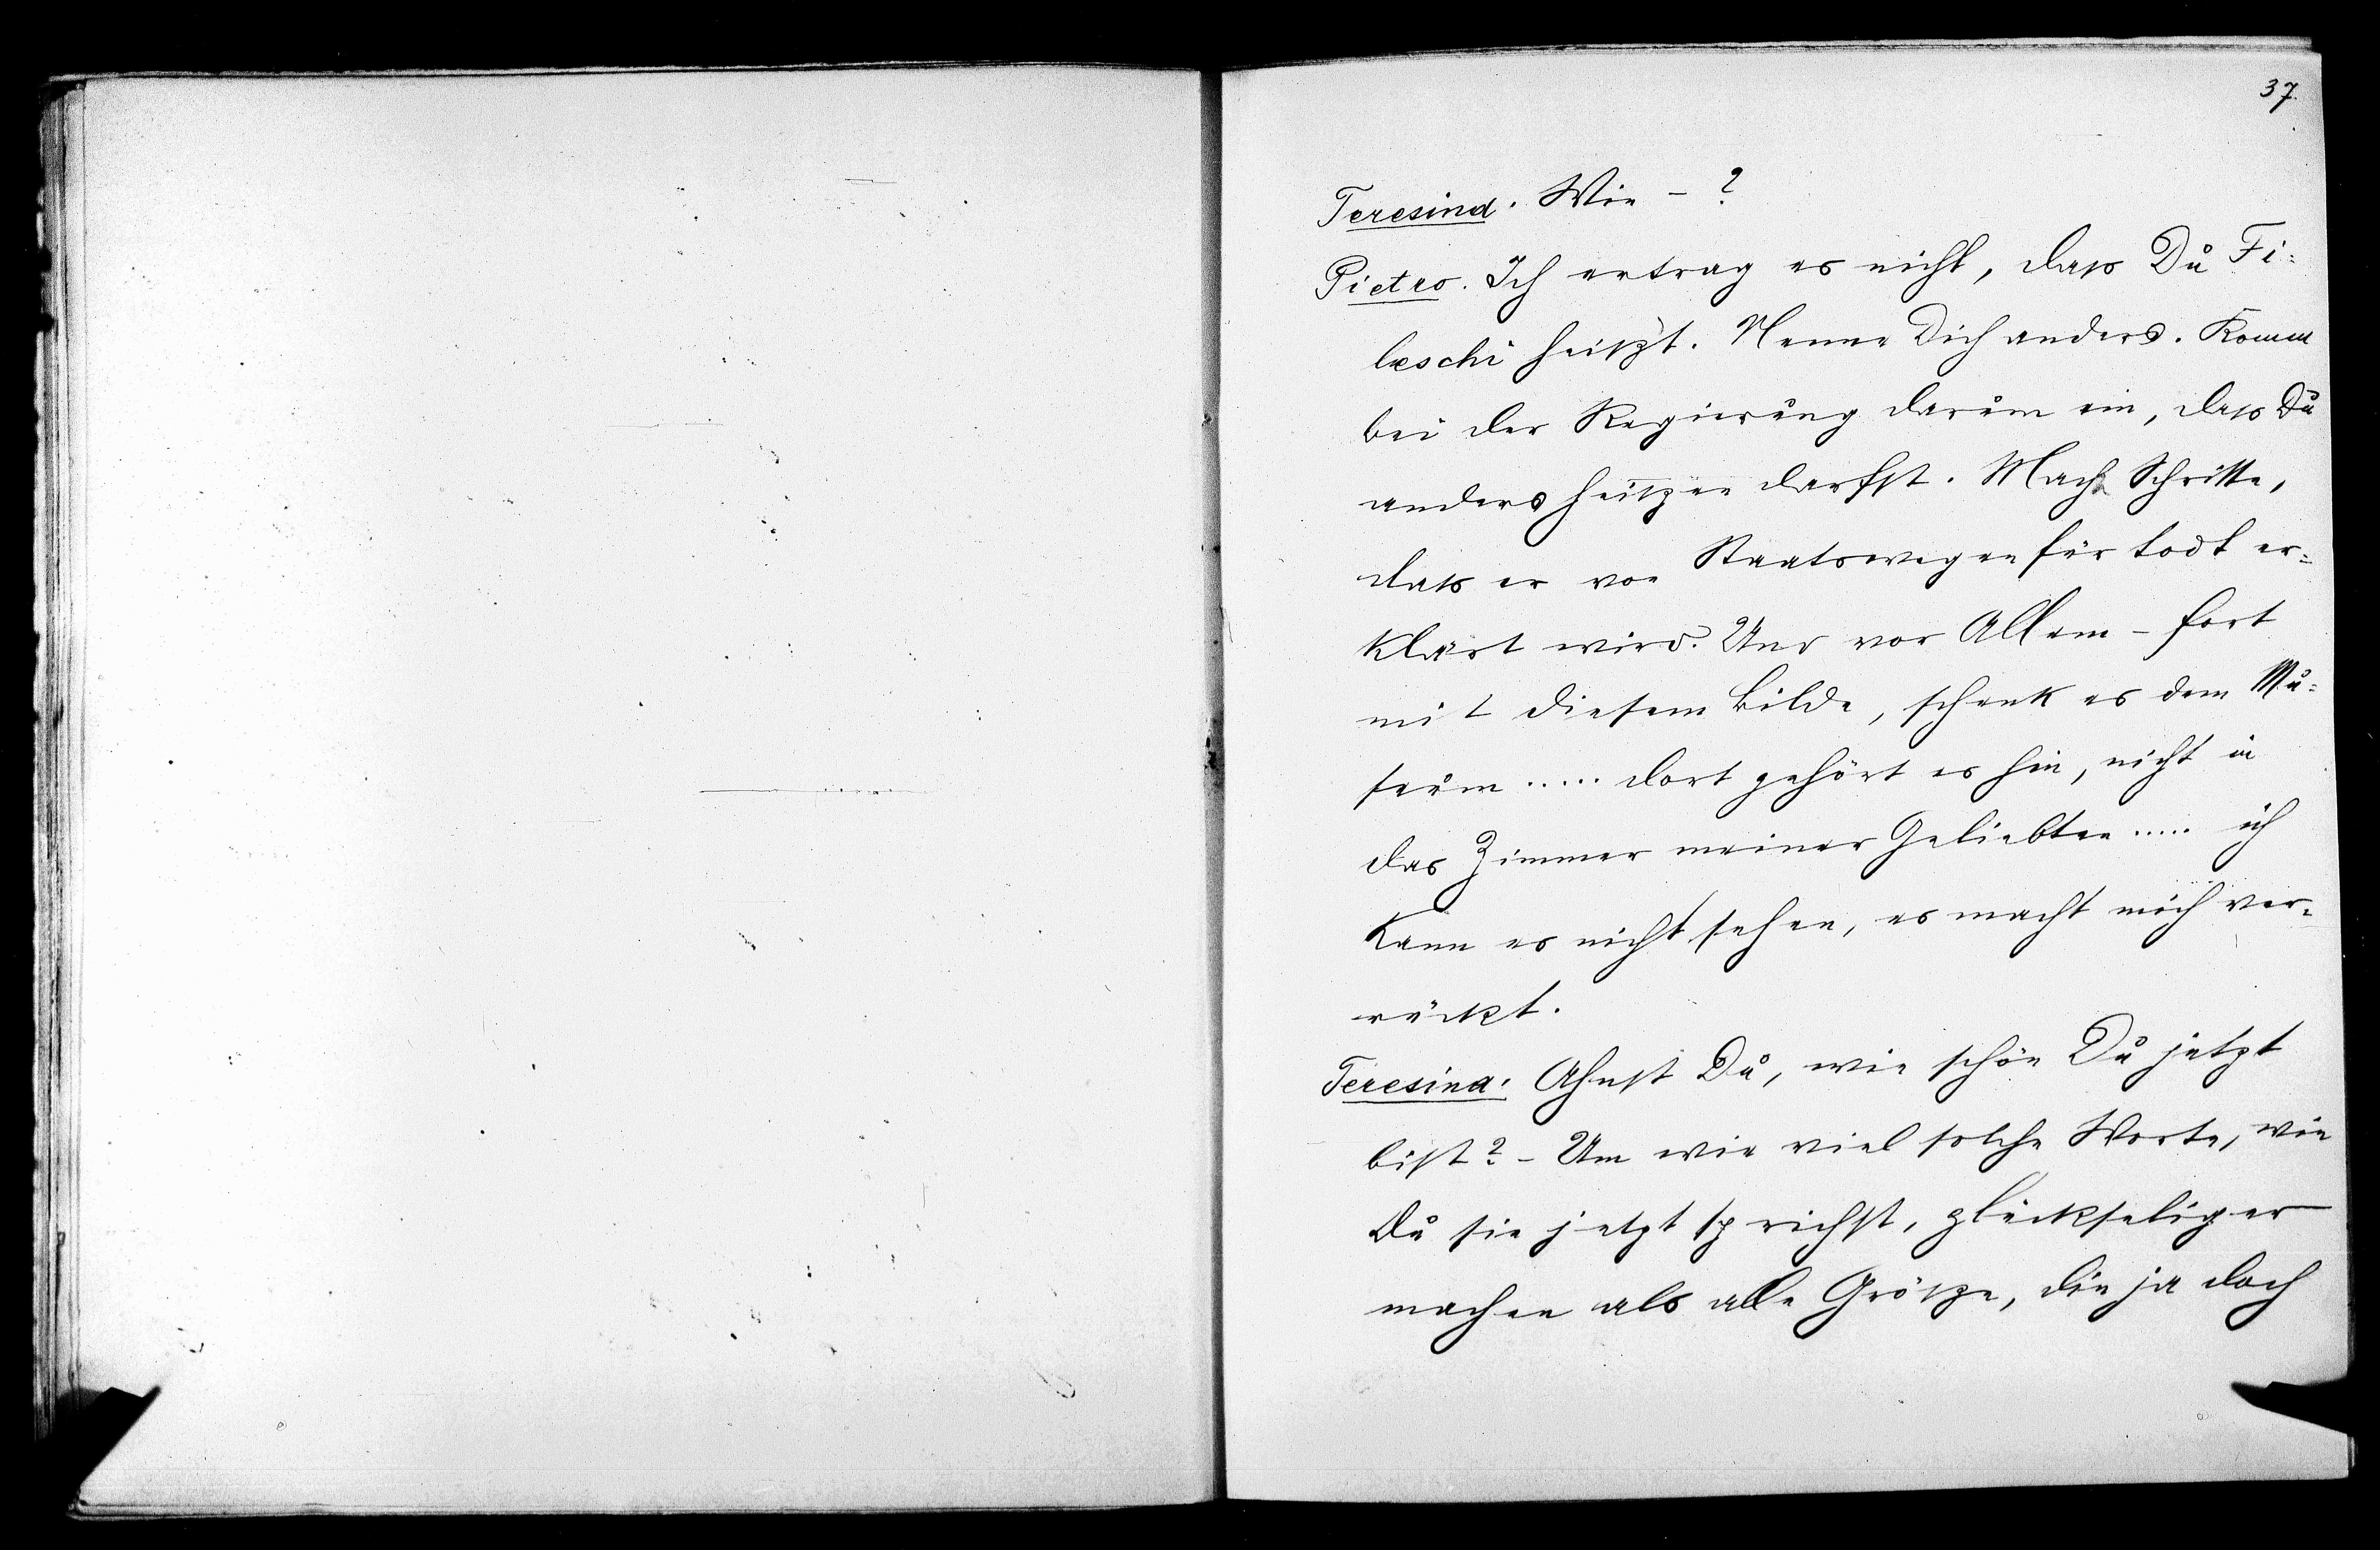 37.
Teresina. Wie – ?
Pietro. Ich ertrag es nicht, dass Du Fi-
leschi heißt. Nenne Dich anders. Komm
bei der Regierung darum ein, dass Du
anders heißen darfst. Mach Schritte,
dass er von Staatswegen für todt er-
klärt wird. Und vor Allem – fort
mit diesem Bilde, schenk es dem Mu-
seum ..... dort gehört es hin, nicht in
das Zimmer meiner Geliebten ..... ich
kann es nicht sehen, es macht mich ver-
rückt.
Teresina. Ahnst Du, wie schön Du jetzt
bist? – Um wie viel solche Worte, wie
Du sie jetzt sprichst, glückseliger
machen als alle Größe, die ja doch